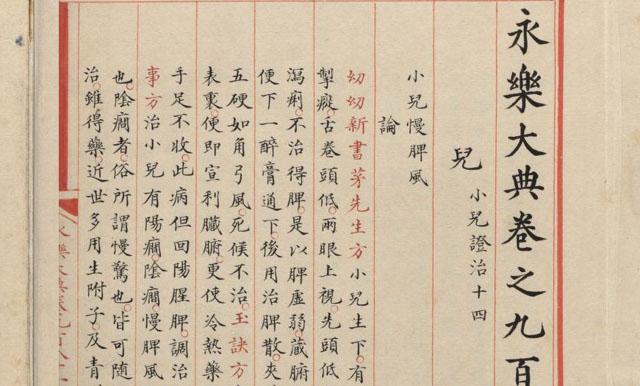 永樂大典卷之九百
兒 小兒證治十四
小兒慢脾風
論
幼幼新書茅先生方小兒生下有
掣瘲舌卷頭低兩眼上視先頭低
瀉痢不治得脾是以脾虛弱蔵腑
便下一醉膏通下後用治脾散夾
五硬如角弓風死候不治玉訣方
表裏便即宣利臟腑更使冷熱藥
手足不收此病但回陽腥脾調治
事方治小兒有陽癎陰癎慢脾風
也陰癎者俗所謂慢驚也皆可随
治錐得藥近世多用生附子及青